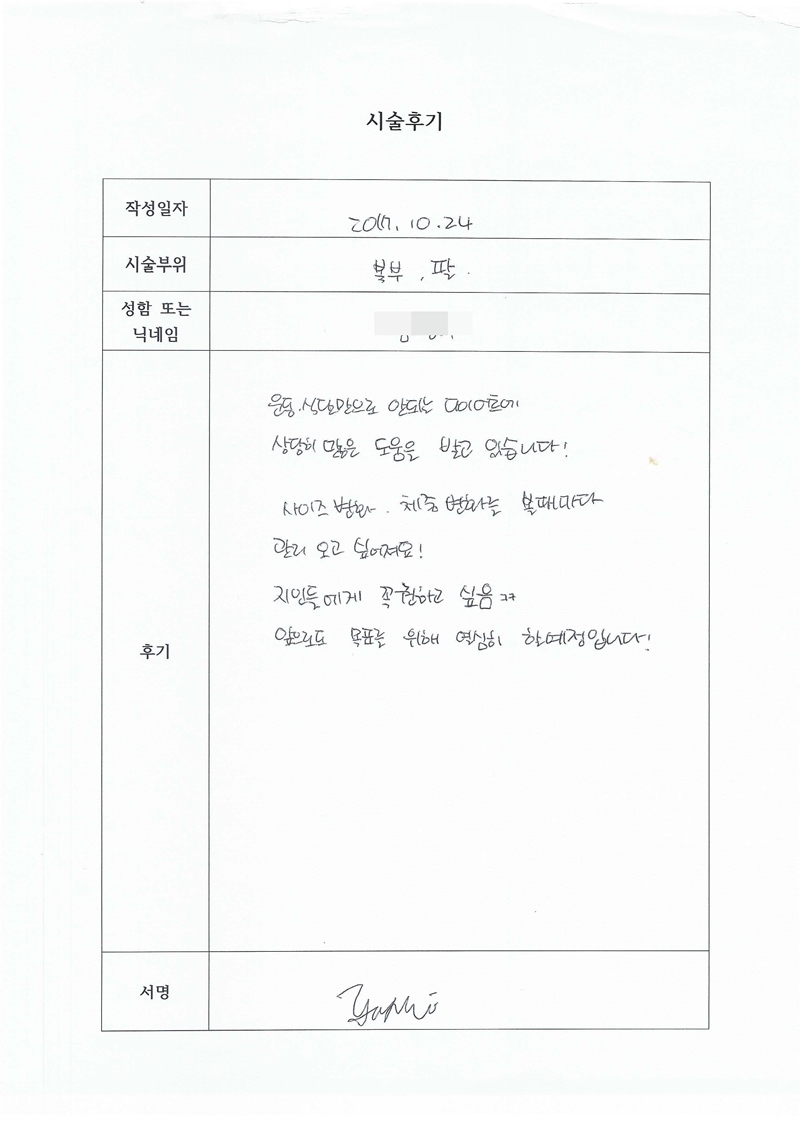 시술후기
작성일자
2017. 10. 24
시술부위
복부, 팔.
성함 또는
닉네임
후기
운동.식단만으로 안되는 다이어트에
상당히 많은 도움을 받고 있습니다!
사이즈변화. 체중변화를 볼때마다
관리 오고 싶어져요!
지인들에게 꼭 추천하고 싶음ㅋㅋ
앞으로도 목표를 위해 열심히 할예정입니다!
서명